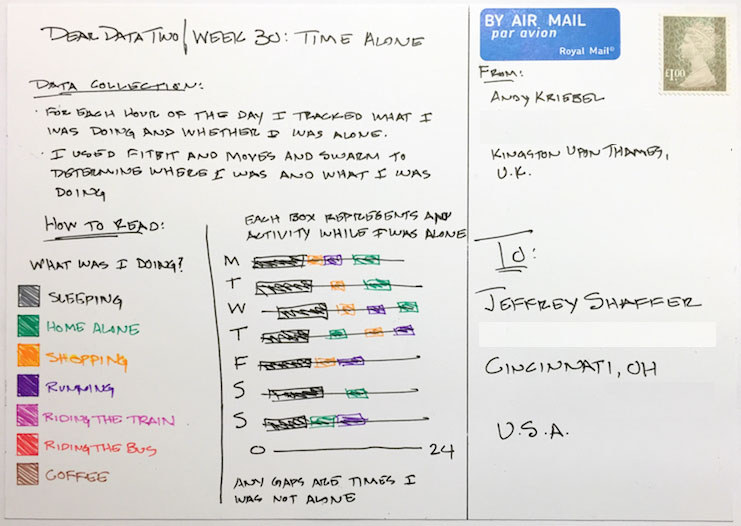 DEAR DATA TWO / WEEK 30: TIME ALONE
DATA COLLECTION:
· FOR EACH HOUR OF THE DAY I TRACKED WHAT I
WAS DOING AND WHETHER I WAS ALONE.
· I USED FITBIT AND MOVES AND SWARM TO
DETERMINE WHERE I WAS AND WHAT I WAS
DOING
HOW TO READ:
WHAT WAS I DOING?
SLEEPING
HOME ALONE
SHOPPING
RUNNING
RIDING THE TRAIN
RIDING THE BUS
COFFEE
EACH BOX REPRESENTS AN
ACTIVITY WHILE I WAS ALONE
M
T
W
T
F
S
S
0 24
ANY GAPS ARE TIMES I
WAS NOT ALONE
BY AIR MAIL
par avion
Royal Mail®
£1.00
FROM:
ANDY KRIEBEL
KINGSTON UPON THAMES,
U.K.
TO:
JEFFREY SHAFFER
CINCINNATI, OH
U.S.A.